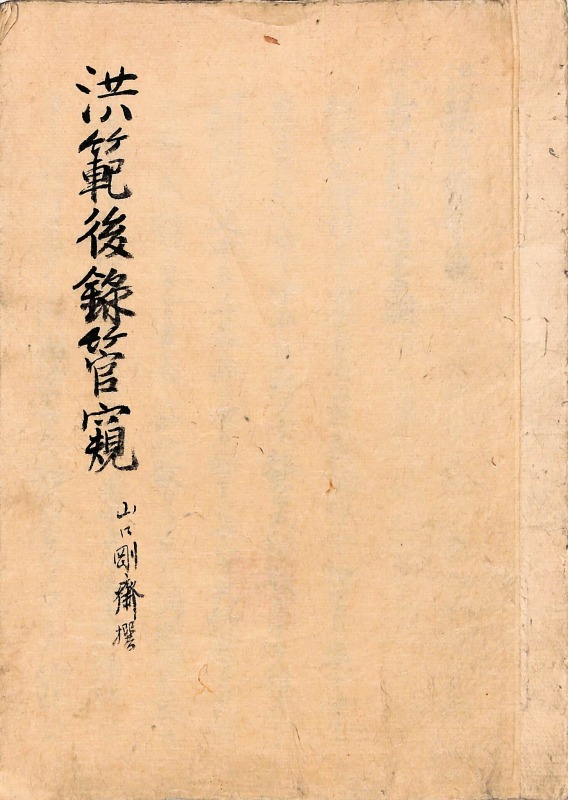 洪範後錄管窺
山口剛齋撰